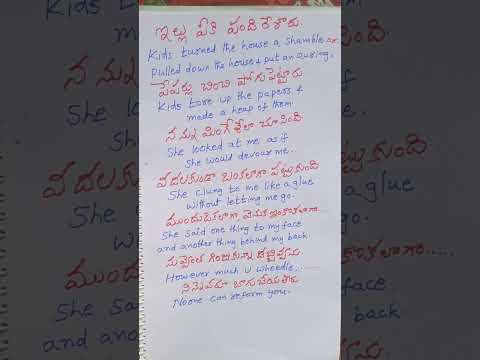 ఇల్లు పీకి పందిరేశారు.
Kids turned the house a shamble or
Pulled down the house & put an awning.
పేపర్లు చించి పోగు పెట్టారు
Kids tore up the papers &
made a heap of them.
నన్ను మింగేశేలా చూసింది
She looked at me as if
She would devour me.
వదలకుండా బంకలాగా పట్టుకుంది
She clung to me like a glue
without letting me go.
ముందుఒకలాగా, వెనుక ఇంకొకలాగా.....
She said one thing to my face
and another thing behind my back
నువ్వెంత గింజుకున్నా
However much u wheedle.......
నిన్నెవరూ బాగుచేయలేరు
Noone can reform you.